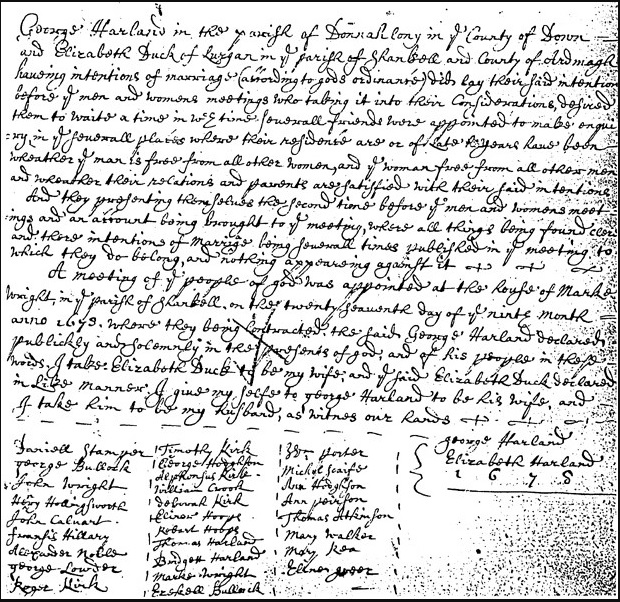 George Harland in the parish of Donnahlony in ye County of Down
and Elizabeth Duck of Lurgan in ye parish of Shankell and County of Ardmagh
haveing intentions of marriage (according to gods ordinance) did lay their said intention
before ye men and womens meetings who taking it into their Considerations, desired
them to waite a time in wch time severall friends were appointed to make enqui
=ry in ye severall places where their residence are or of late years have been
wheather ye man is free from all other women, and ye woman free from all other men
and wheather their relations and parents are satisfied with their said intentions
And they presenting themselves the second time before ye men and womens meet
ings and an account being brought to ye meeting, where all things being found clere
and there intentions of Marige being severall times published in ye meeting to
which they do belong, and nothing appeareing against it
A meeting of ye people of god was appointed at the house of Marke
Wright, in ye parish of Shankell, on the twenty seaventh day of ye ninth month
anno 1678. where they being Contracted, the said George Harland declared,
publickly and solemnly in the presents of god, and of his people in these
words, I take Elizabeth Duck to be my wife, and ye said Elizabeth Duck declared
in like manner, I give my selfe to george Harland to be his wife, and
I take him to be my husband, as witnes our hands
george Harland
Elizabeth Harland
1 6 7 8
Daniell Stamper
george Bullock
John Wright
Henry Hollingsworth
John Calvart
Fransis Hillary
Alexander Noble
george Lowder
Roger Kirk
Timothy Kirk
George Hogshon
Alphonsus Kirk
William Crook
deborah Kirk
Eliner Hoops
Robart Hoops
Thomas Harland
Bridgett Harland
Marke Wright
Ezekell Bullock
Wm. porter
Michol Scaife
Ann Hogshon
Ann peirson
Thomas Atkinson
Mary Walker
Mary Rea
Eliner greer